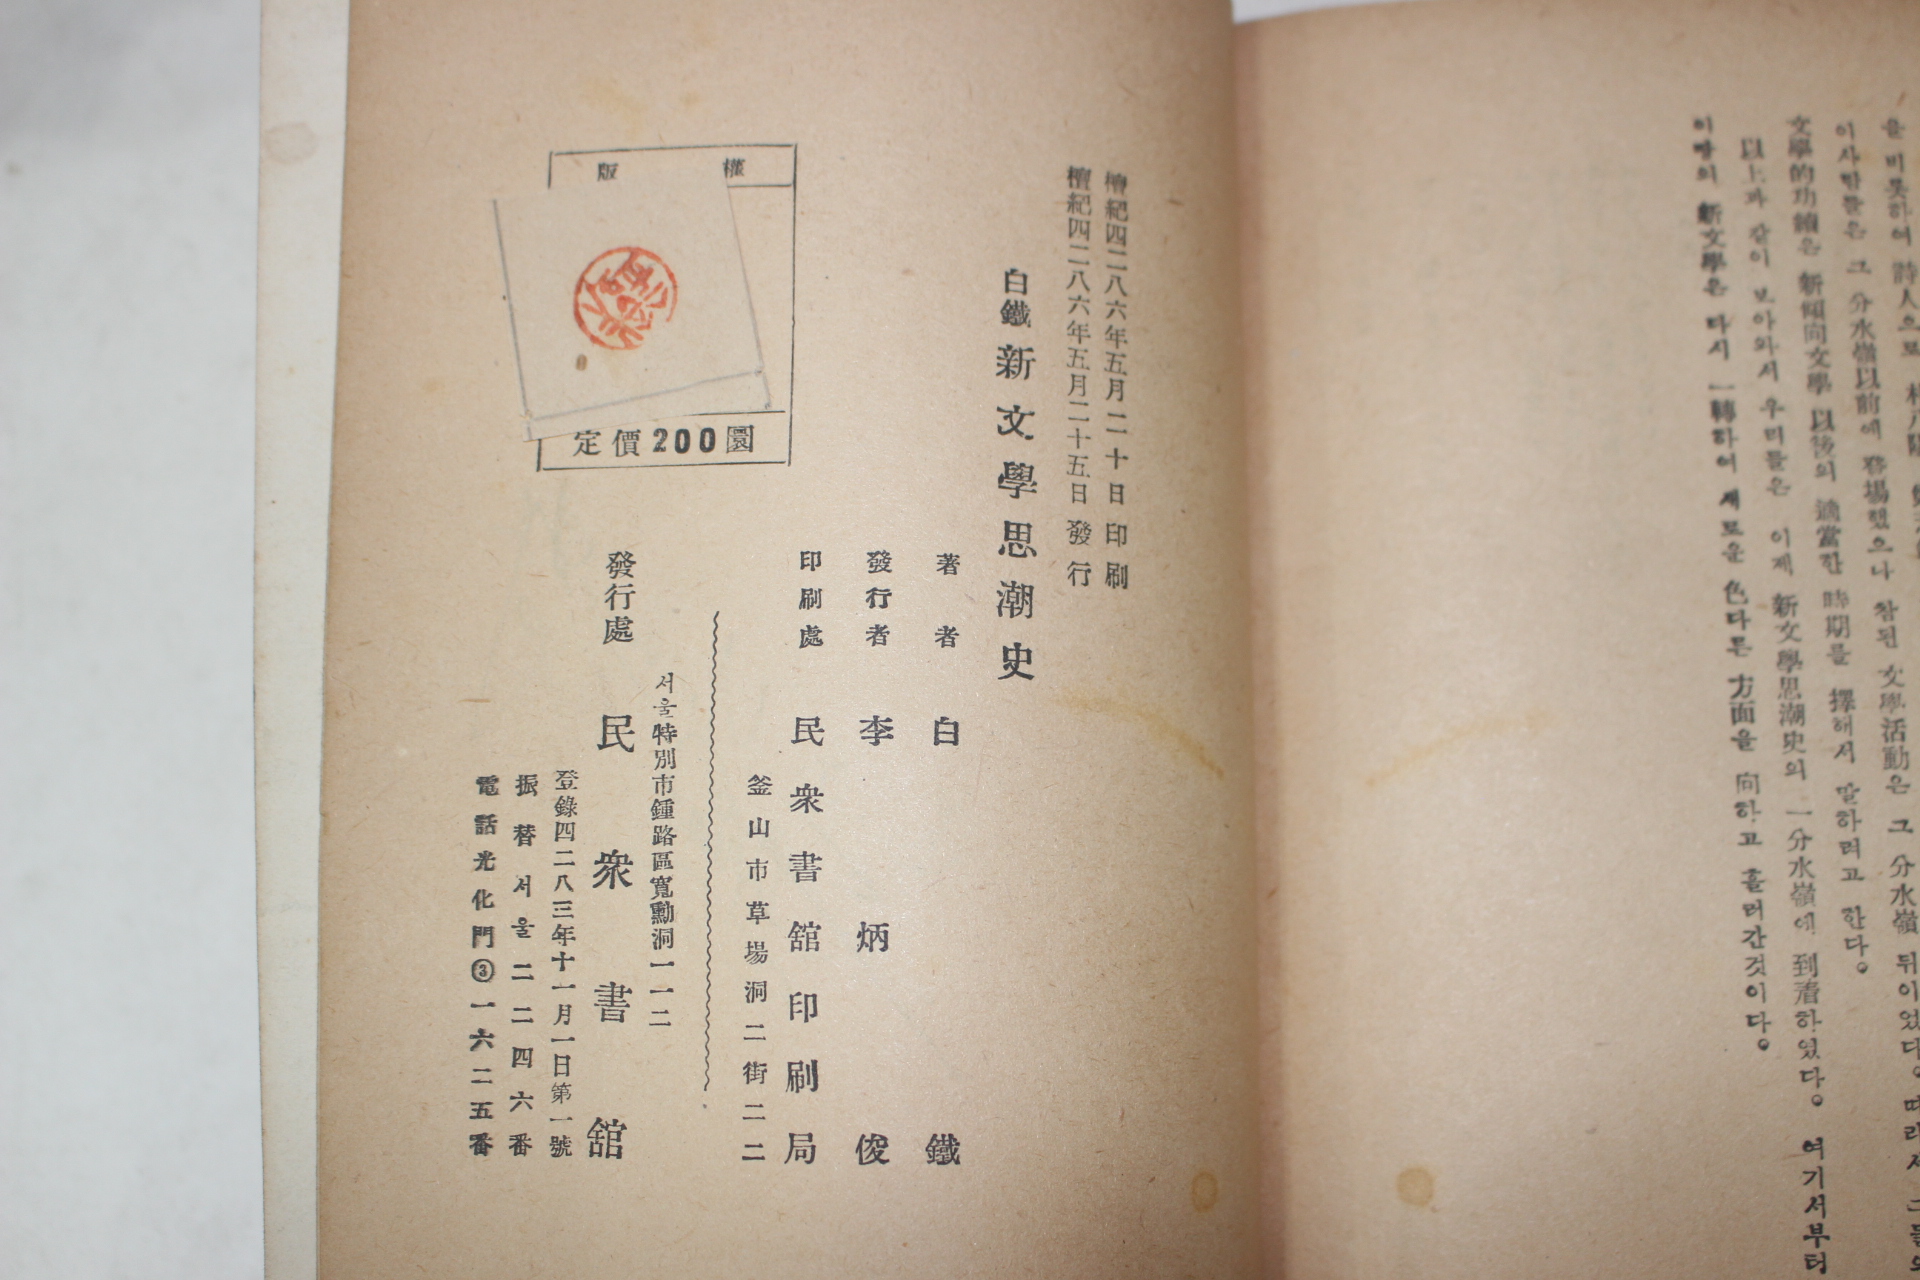 을 비롯하여 詩人으로
이사람들은 그 分水嶺以前에 登場했으나 참된 文學活動은 그 分水嶺 뒤이었다。따라서 그들의
文學的功績은 新傾向文學 以後의 適當한 時期를 擇해서 말하려고 한다。
以上과 같이 보아와서 우리들은 이제 新文學思潮史의 一分水嶺에 到着하였다。 여기서부터
이땅의 新文學은 다시 一轉하여 새로운 色다른 方面을 向하고 흘러간것이다。
檀紀四二八六年五月二十日 印刷
檀紀四二八六年五月二十五日 發行
白鐵 新文學思潮史
著者 白鐵
發行者 李炳俊
印刷處 民衆書舘印刷局
釜山市草場洞二街二二
서울特別市鍾路區寬勳洞一一二
發行處 民衆書舘
登錄四二八三年十一月一日第一號
振替서울二二四六番
電話光化門③一六二五番
版權
定價200圜